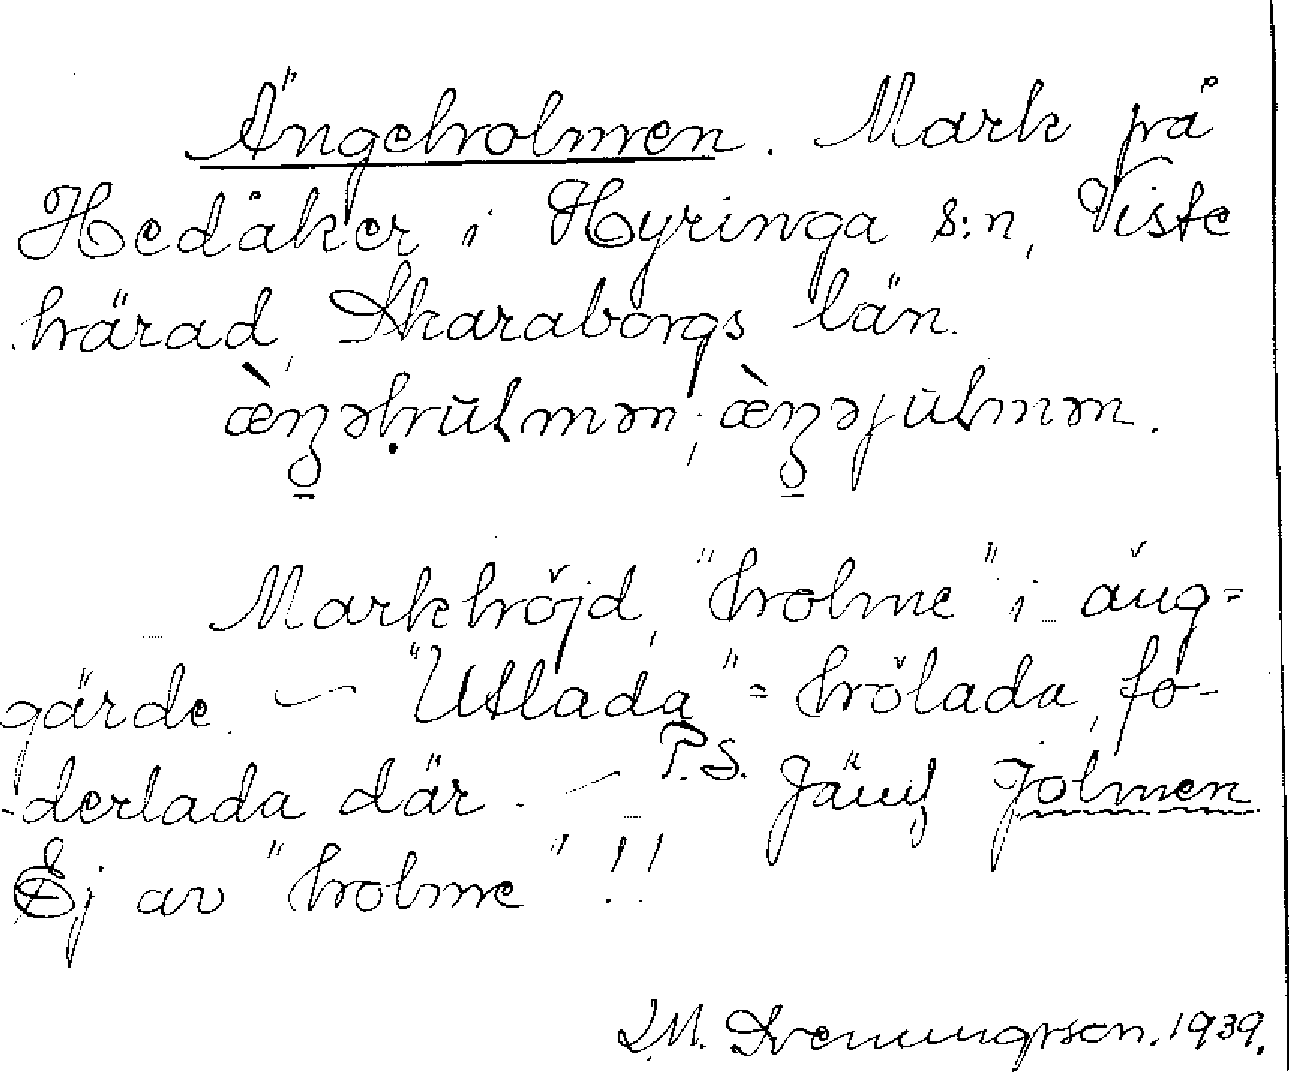 Ängeholmen. Mark på
Hedåker i Hyringa s:n, Viste
härad, Skaraborgs län.
Markhöjd, "holme" i äng=
gärde. – "Utlada" = hölada, fo-
derlada där. – P.S. Jämf Jolmen
Ej av "holme" !!
J.M. Svenungsson. 1939.